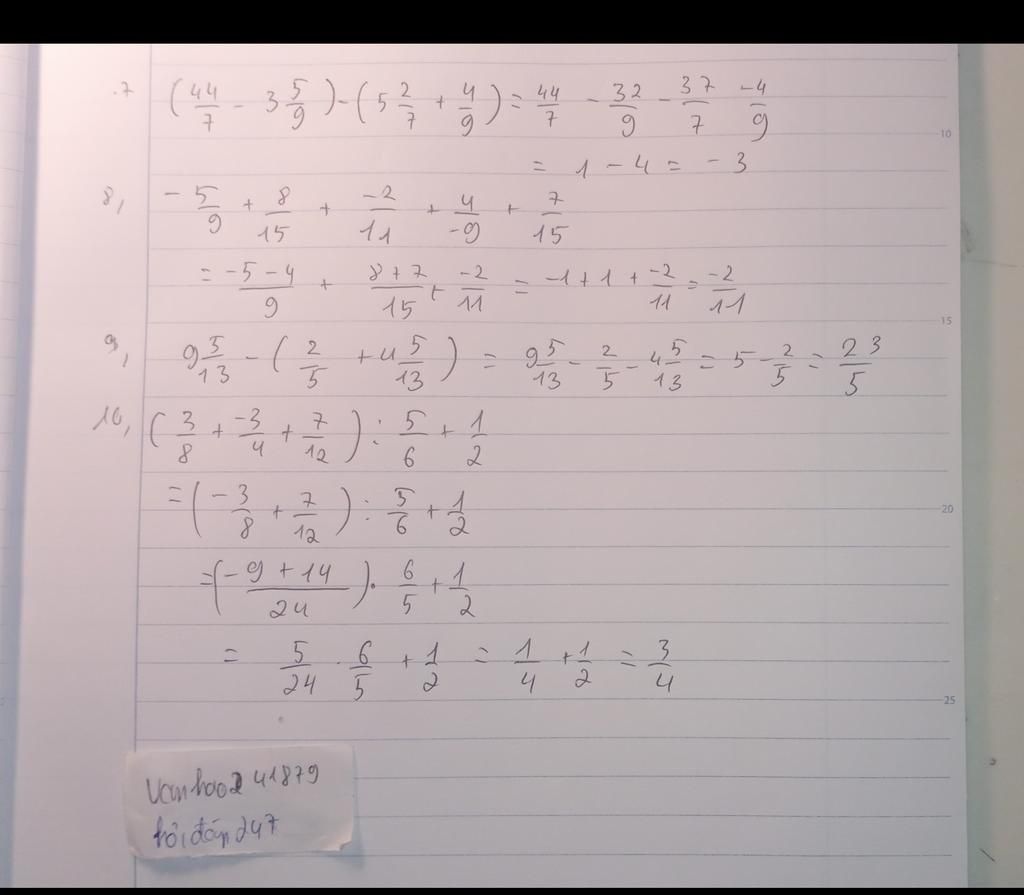 .7 (44/7 - 3 5/9) - (5 2/7 + 4/9) = 44/7 - 32/9 - 37/7 -4/9
= 1 - 4 = - 3
8, -5/9 + 8/15 + -2/11 + 4/-9 + 7/15
= -5-4/9 + 8+7/15 + -2/11 = -1 + 1 + -2/11 = -2/11
9, 9 5/13 - (2/5 + 4 5/13) = 9 5/13 - 2/5 - 4 5/13 = 5 - 2/5 = 23/5
10, (3/8 + -3/4 + 7/12) : 5/6 + 1/2
= (-3/8 + 7/12) : 5/6 + 1/2
= (-9+14/24) . 6/5 + 1/2
= 5/24 . 6/5 + 1/2 = 1/4 + 1/2 = 3/4
Vanhao241879
hỏi đáp 247
10
15
20
25